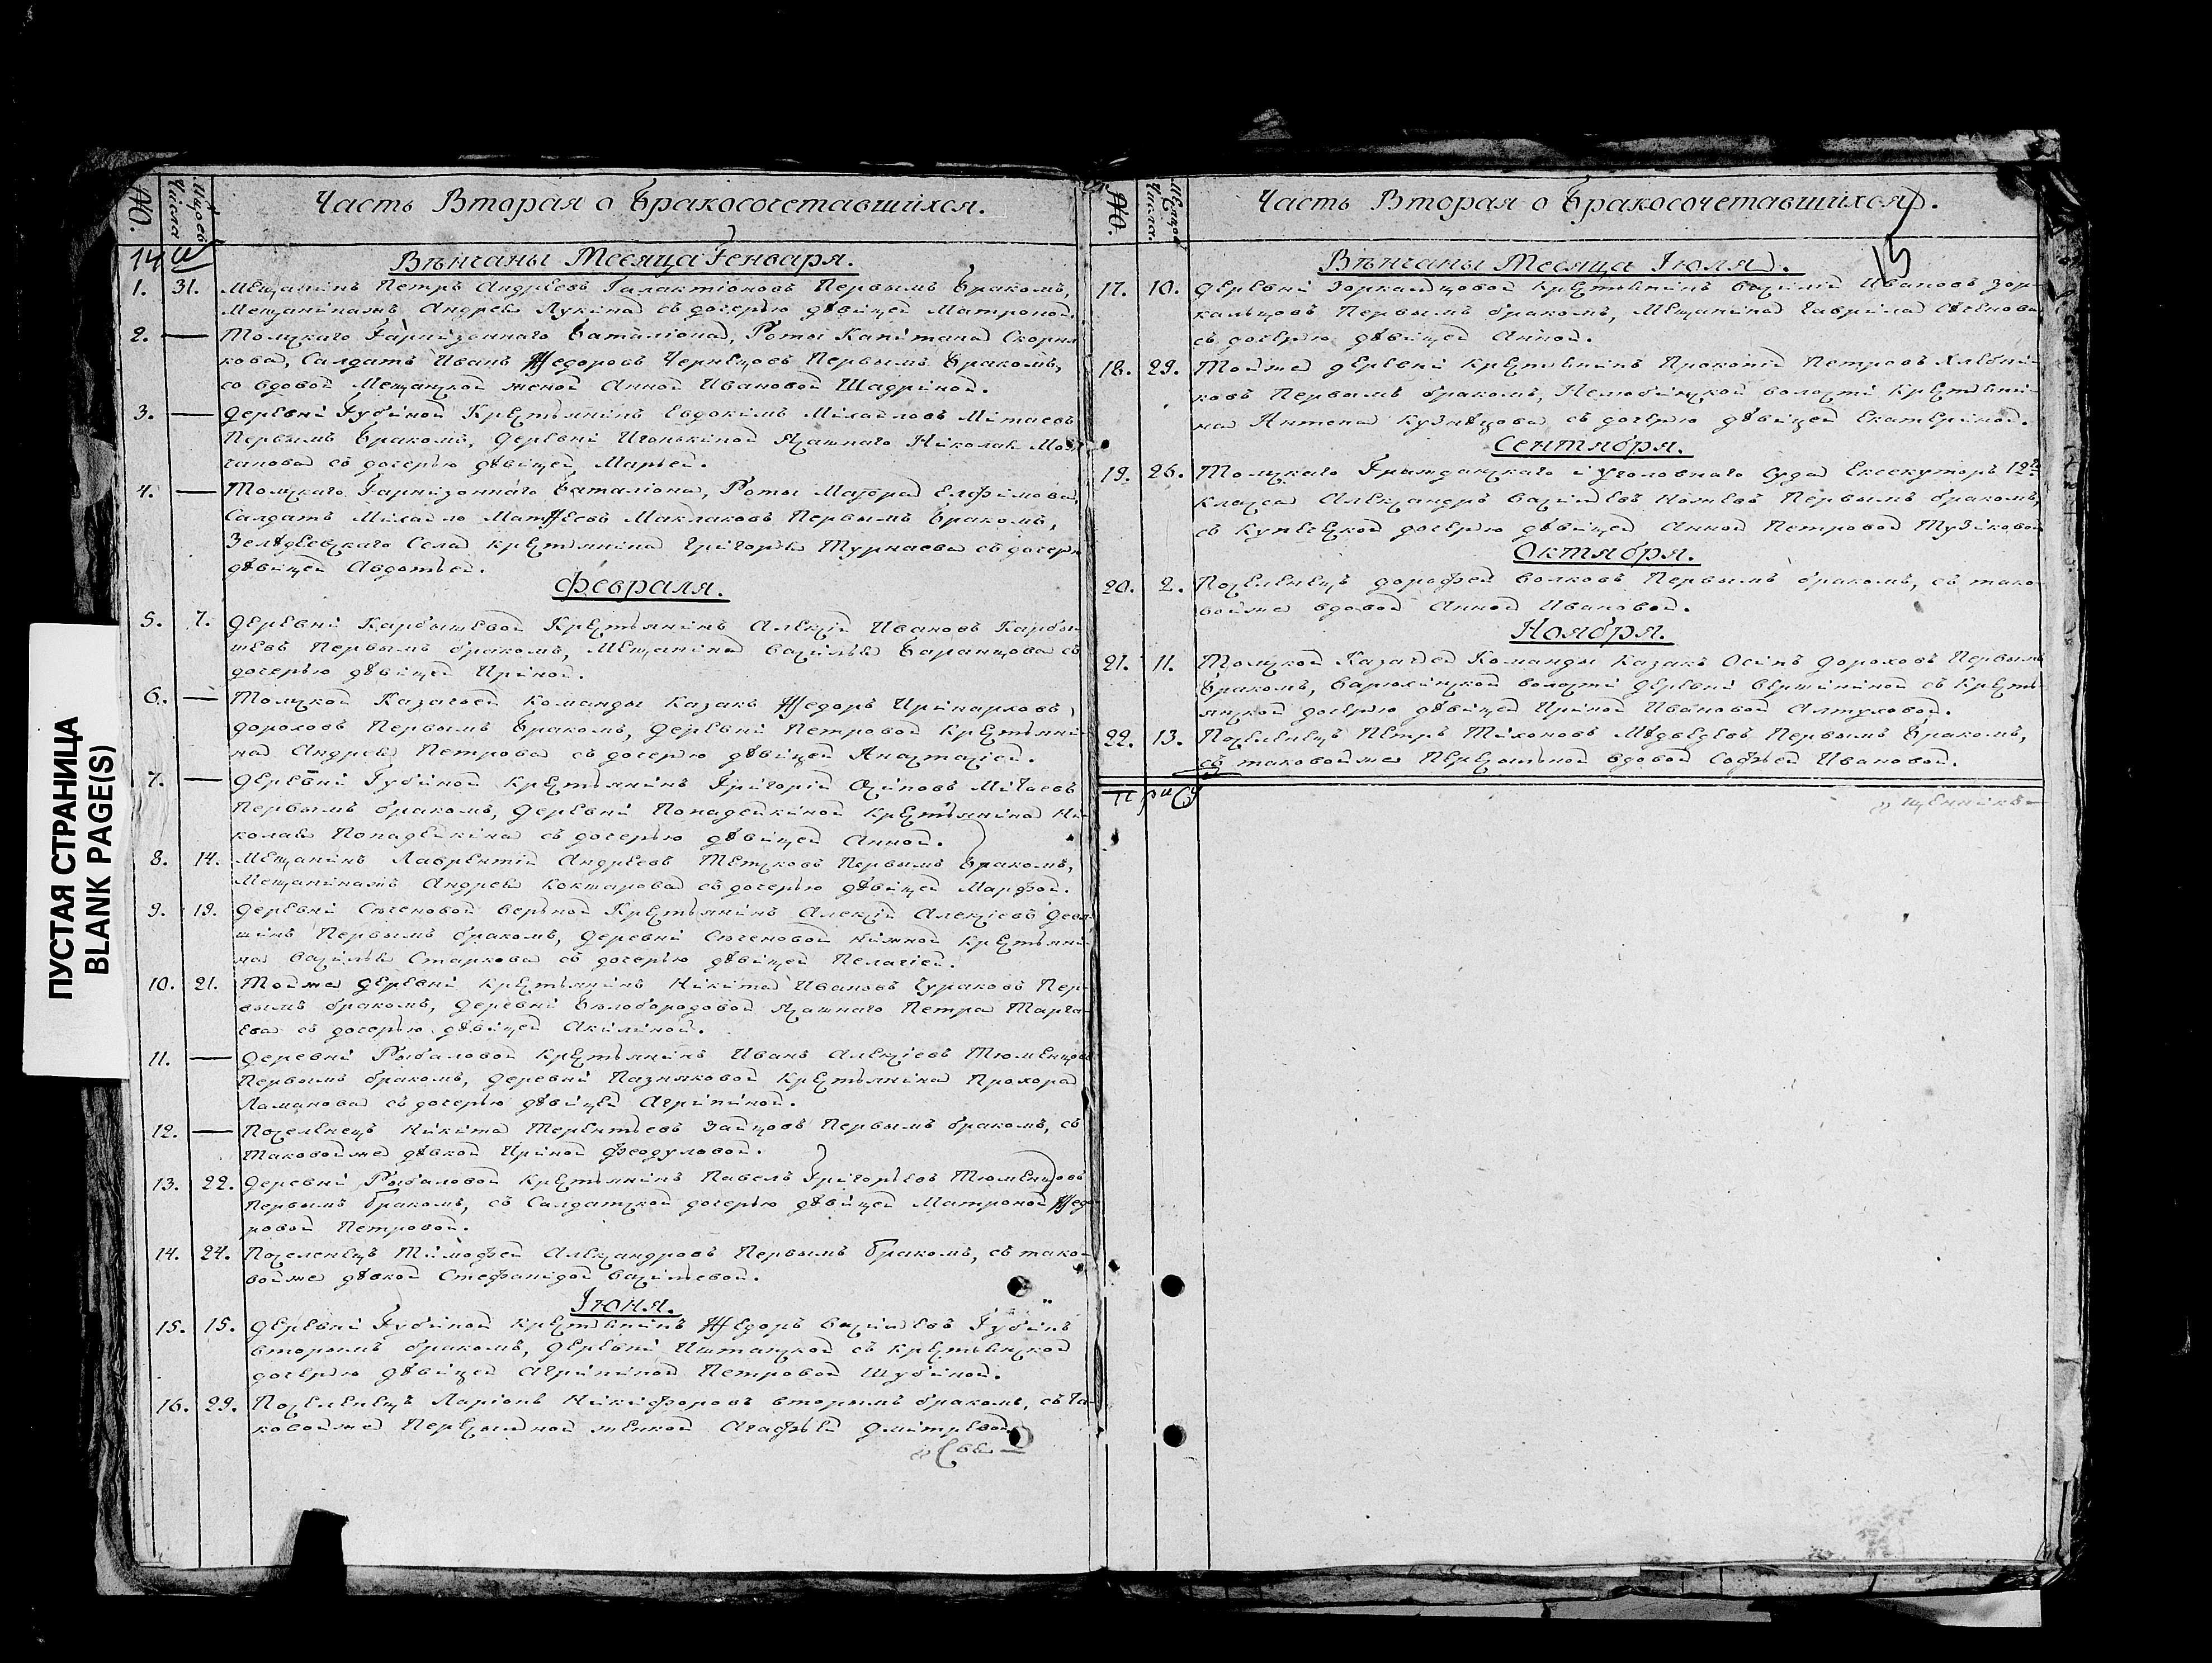 ПУСТАЯ СТРАНИЦА
BLANK PAGE(S)
№. Мѣсяцовъ Числа
Часть Вторая о Бракосочетавшихся.
14
Вѣнчаны Месяца Генваря.
1. 31. Мещанинъ Петръ Андреевъ Галактіоновъ Первымъ Бракомъ,
Мещанинамъ Андрея Лукина съ дочерью дѣвицей Матроной.
2. — Томскаго Гарнизоннаго Баталіона, Роты Капитана Скорня
кова, Салдатъ Иванъ Ѳедоровъ Чернецовъ Первымъ Бракомъ,
со вдовой Мещанской женой Анной Ивановой Шадриной.
3. — Деревни Губиной Крестьянинъ Евдокимъ Михайловъ Митаевъ
Первымъ Бракомъ, Деревни Игонькиной Ясашнаго Николая Мол
чанова съ дочерью дѣвицей Марьей.
4. — Томскаго Гарнизоннаго Баталіона, Роты Маіора Елфимова,
Салдатъ Михайло Матѳеевъ Маклаковъ Первымъ Бракомъ,
Зелѣдеевскаго Села крестьянина Григорья Турнаева съ дочерью
дѣвицей Авдотьей.
Февраля.
5. 7. Деревни Карбышевой Крестьянинъ Алексій Ивановъ Карбы
шевъ Первымъ бракомъ, Мещанина Василья Баранцова съ
дочерью дѣвицей Ириной.
6. — Томской Казачьей Команды Казакъ Ѳедоръ Иринарховъ
Дороховъ Первымъ Бракомъ, Деревни Петровой Крестьяни
на Андрея Петрова съ дочерью дѣвицей Анастасіей.
7. — Деревни Губиной Крестьянинъ Григорій Осиповъ Митаевъ
Первымъ бракомъ, Деревни Попадейкиной Крестьянина Ни
колая Попадейкина съ дочерью дѣвицей Анной.
8. 14. Мещанинъ Лаврентій Андреевъ Тецковъ Первымъ Бракомъ,
Мещанинамъ Андрея Кокшарова съ дочерью дѣвицей Марфой.
9. 19. Деревни Сѣченовой Верьхной Крестьянинъ Алексій Алексіевъ Дева
шинъ Первымъ бракомъ, Деревни Сѣченовой Нижной Крестьяни
на Василья Старкова съ дочерью дѣвицей Пелагіей.
10. 21. Тойже Деревни Крестьянинъ Никита Ивановъ Бураковъ Пер
вымъ бракомъ, Деревни Бѣлобородовой Ясашнаго Петра Тарга
ева съ дочерью дѣвицей Акилиной.
11. — Деревни Рыбаловой Крестьянинъ Иванъ Алексіевъ Тюменцовъ
Первымъ бракомъ, Деревни Позняковой Крестьянина Прохора
Ламанова съ дочерью дѣвицей Агрипиной.
12. — Поселенецъ Никита Терентьевъ Зайцовъ Первымъ бракомъ, съ
таковойже дѣвкой Ириной Феодуловой.
13. 22. Деревни Рыбаловой Крестьянинъ Павелъ Григорьевъ Тюменцовъ
Первымъ Бракомъ, съ Салдатской дочерью дѣвицей Матроной Ѳедо
ровой Петровой.
14. 24. Поселенецъ Тимофей Александровъ Первымъ Бракомъ, съ тако
войже дѣвкой Стефанидой Васильевой.
Іюня.
15. 15. Деревни Губиной крестьянинъ Ѳедоръ Васильевъ Губинъ
вторымъ бракомъ, Деревни Иштанской съ крестьянской
дочерью дѣвицей Агрипиной Петровой Шубиной.
16. 29. Поселенецъ Ларіонъ Никифоровъ вторымъ бракомъ, съ та
ковойже Пересыльной женкой Агафьей Дмитревой
№. Мѣсяцовъ Числа.
Часть Вторая о Бракосочетавшихся.
15
Вѣнчаны Месяца Іюля.
17. 10. Деревни Зоркальцовой Крестьянинъ Василій Ивановъ Зор
кальцовъ Первымъ бракомъ, Мещанина Гаврила Сѣченова
съ дочерью дѣвицей Анной.
18. 29. Тойже деревни крестьянинъ Прокопій Петровъ Хлебни
ковъ Первымъ бракомъ, Нелюбинской волости крестьяни
на Антона Кузнѣцова съ дочерью дѣвицей Екатериной.
Сентября.
19. 26. Томскаго Гражданскаго и Уголовнаго Суда Екзекуторъ 12го
Класса Александръ Васильевъ Ножевъ Первымъ бракомъ,
съ Купецкой дочерью дѣвицей Анной Петровой Тузиковой
Октября.
20. 2. Поселенецъ Дорофей Волковъ Первымъ бракомъ, съ тако
войже вдовой Анной Ивановой.
Ноября.
21. 11. Томской Казачьей Команды Казакъ Осипъ Дороховъ Первымъ
Бракомъ, Варюхинской волости деревни Вершининой съ Кресть
янской дочерью дѣвицей Ириной Ивановой Алтуховой.
22. 13. Поселенецъ Петръ Тихоновъ Мѣдведевъ Первымъ Бракомъ,
съ таковойже Пересыльной вдовой Софьей Ивановой.
щенникъ